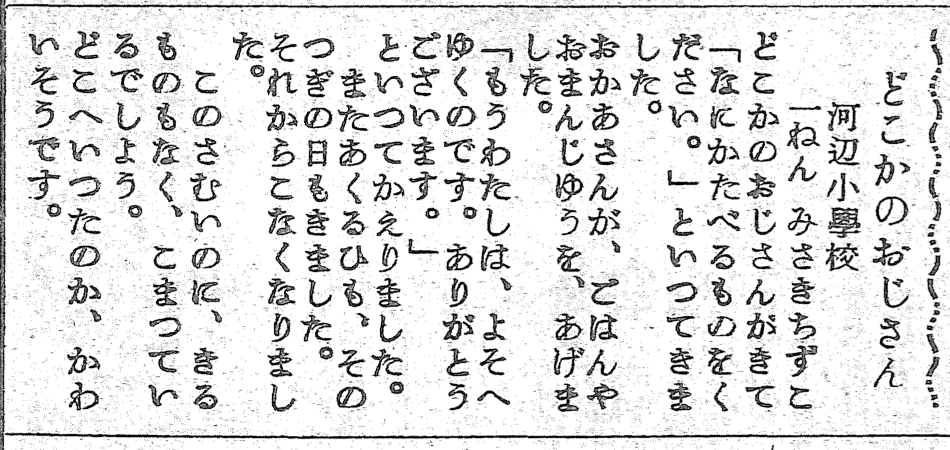 どこかのおじさん
河辺小學校
一ねん　みさきちずこ
どこかのおじさんがきて
「なにかたべるものをく
ださい。」といつてきま
した。
おかあさんが、ごはんや
おまんじゆうを、あげま
した。
「もうわたしは、よそへ
ゆくのです。ありがとう
ございます。」
といつてかえりました。
またあくるひも、その
つぎの日もきました。
それからこなくなりまし
た。
このさむいのに、きる
ものもなく、こまつてい
るでしよう。
どこへいつたのか、かわ
いそうです。